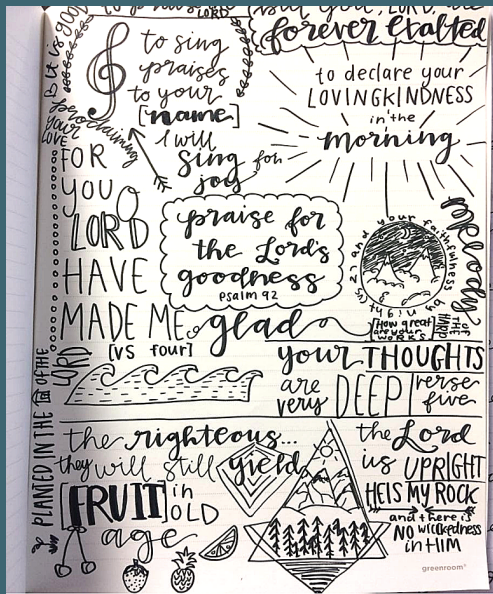 It is good
to praise
LORD
But you, LORD, are
forever Exalted
to sing
praises
to your
[name]
to declare your
LOVINGKINDNESS
in the
morning
proclaiming
your
LOVE
I will
Sing for
joy
FOR
YOU O
LORD
HAVE
MADE ME glad
[VS four]
praise for
the Lord's
goodness
psalm 92
and your faithfulness
by night [VS 2]
melody
OF
THE
HARP
[How great
are your
WORKS
your THOUGHTS
are
very DEEP verse
five
PLANED IN THE OF THE
LORD
the righteous...
they will still yield
[FRUIT] in
OLD
age
the Lord
is UPRIGHT
HE IS MY ROCK
and there is
NO wickedness
in HIM
greenroom